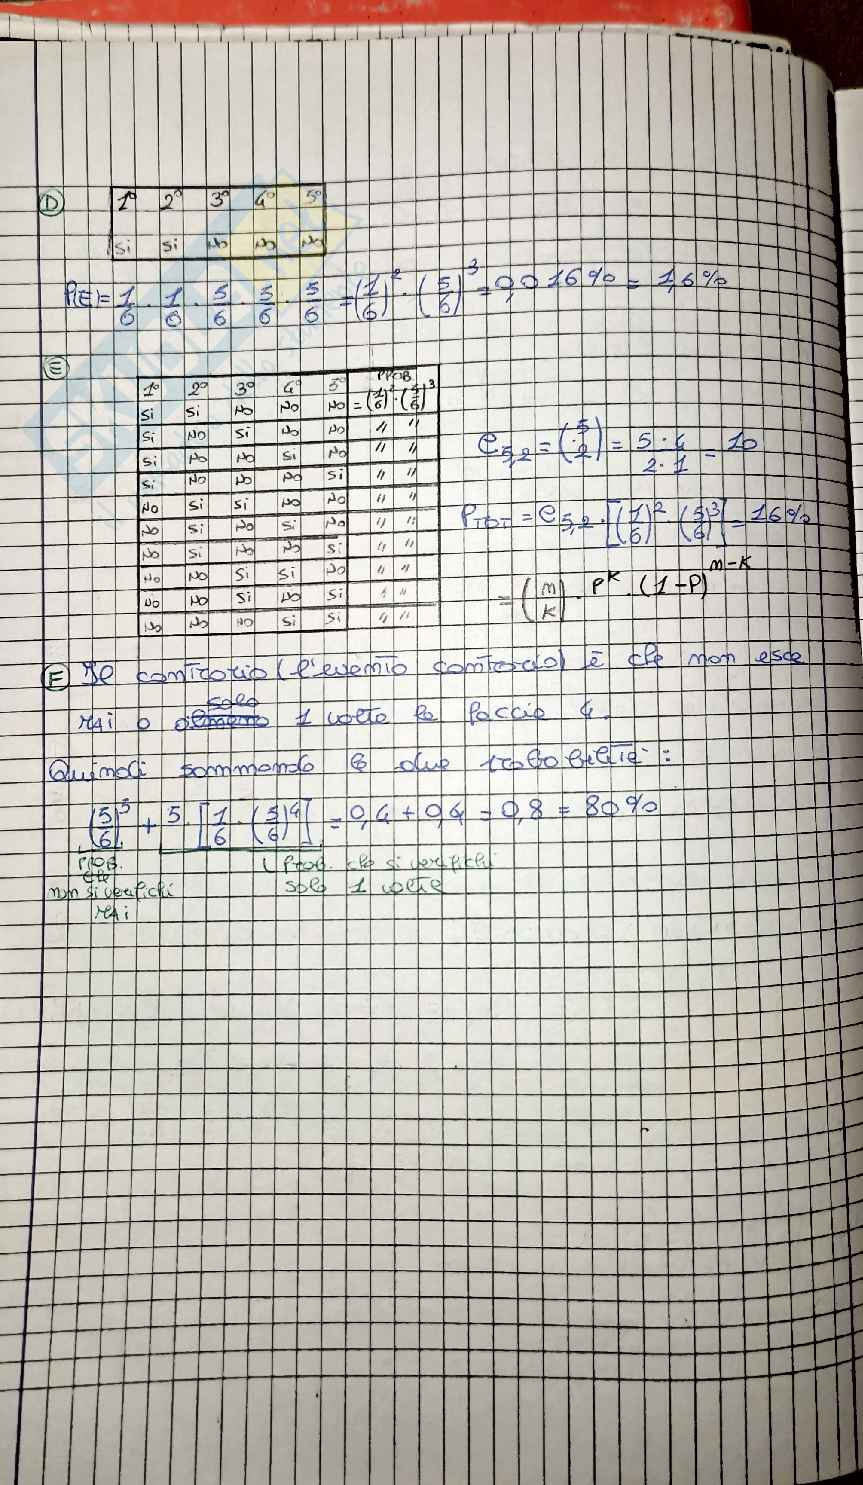 D 1° 2° 3° 4° 5°
si si no no no
P(E)= 1/6 · 1/6 · 5/6 · 5/6 · 5/6 = (1/6)² · (5/6)³ = 0,016% = 1,6%
E
1° 2° 3° 4° 5° PROB
si si no no no = (1/6)² · (5/6)³
si no si no no " "
si no no si no " "
si no no no si " "
no si si no no " "
no si no si no " "
no si no no si " "
no no si si no " "
no no si no si " "
no no no si si " "
C5,2 = (5 2) = 5·4/2·1 = 10
PTOT = C5,2 · [(1/6)² · (5/6)³] = 16%
= (n k) · P^k · (1-P)^n-k
F Il contrario (l'evento contrario) è che non esce
mai o solo 1 volta la faccia 4.
Quindi sommando le due probabilità:
(5/6)⁵ + 5 · [1/6 · (5/6)⁴] = 0,4 + 0,4 = 0,8 = 80%
PROB. che non si verifichi mai
Prob. che si verifichi
solo 1 volta